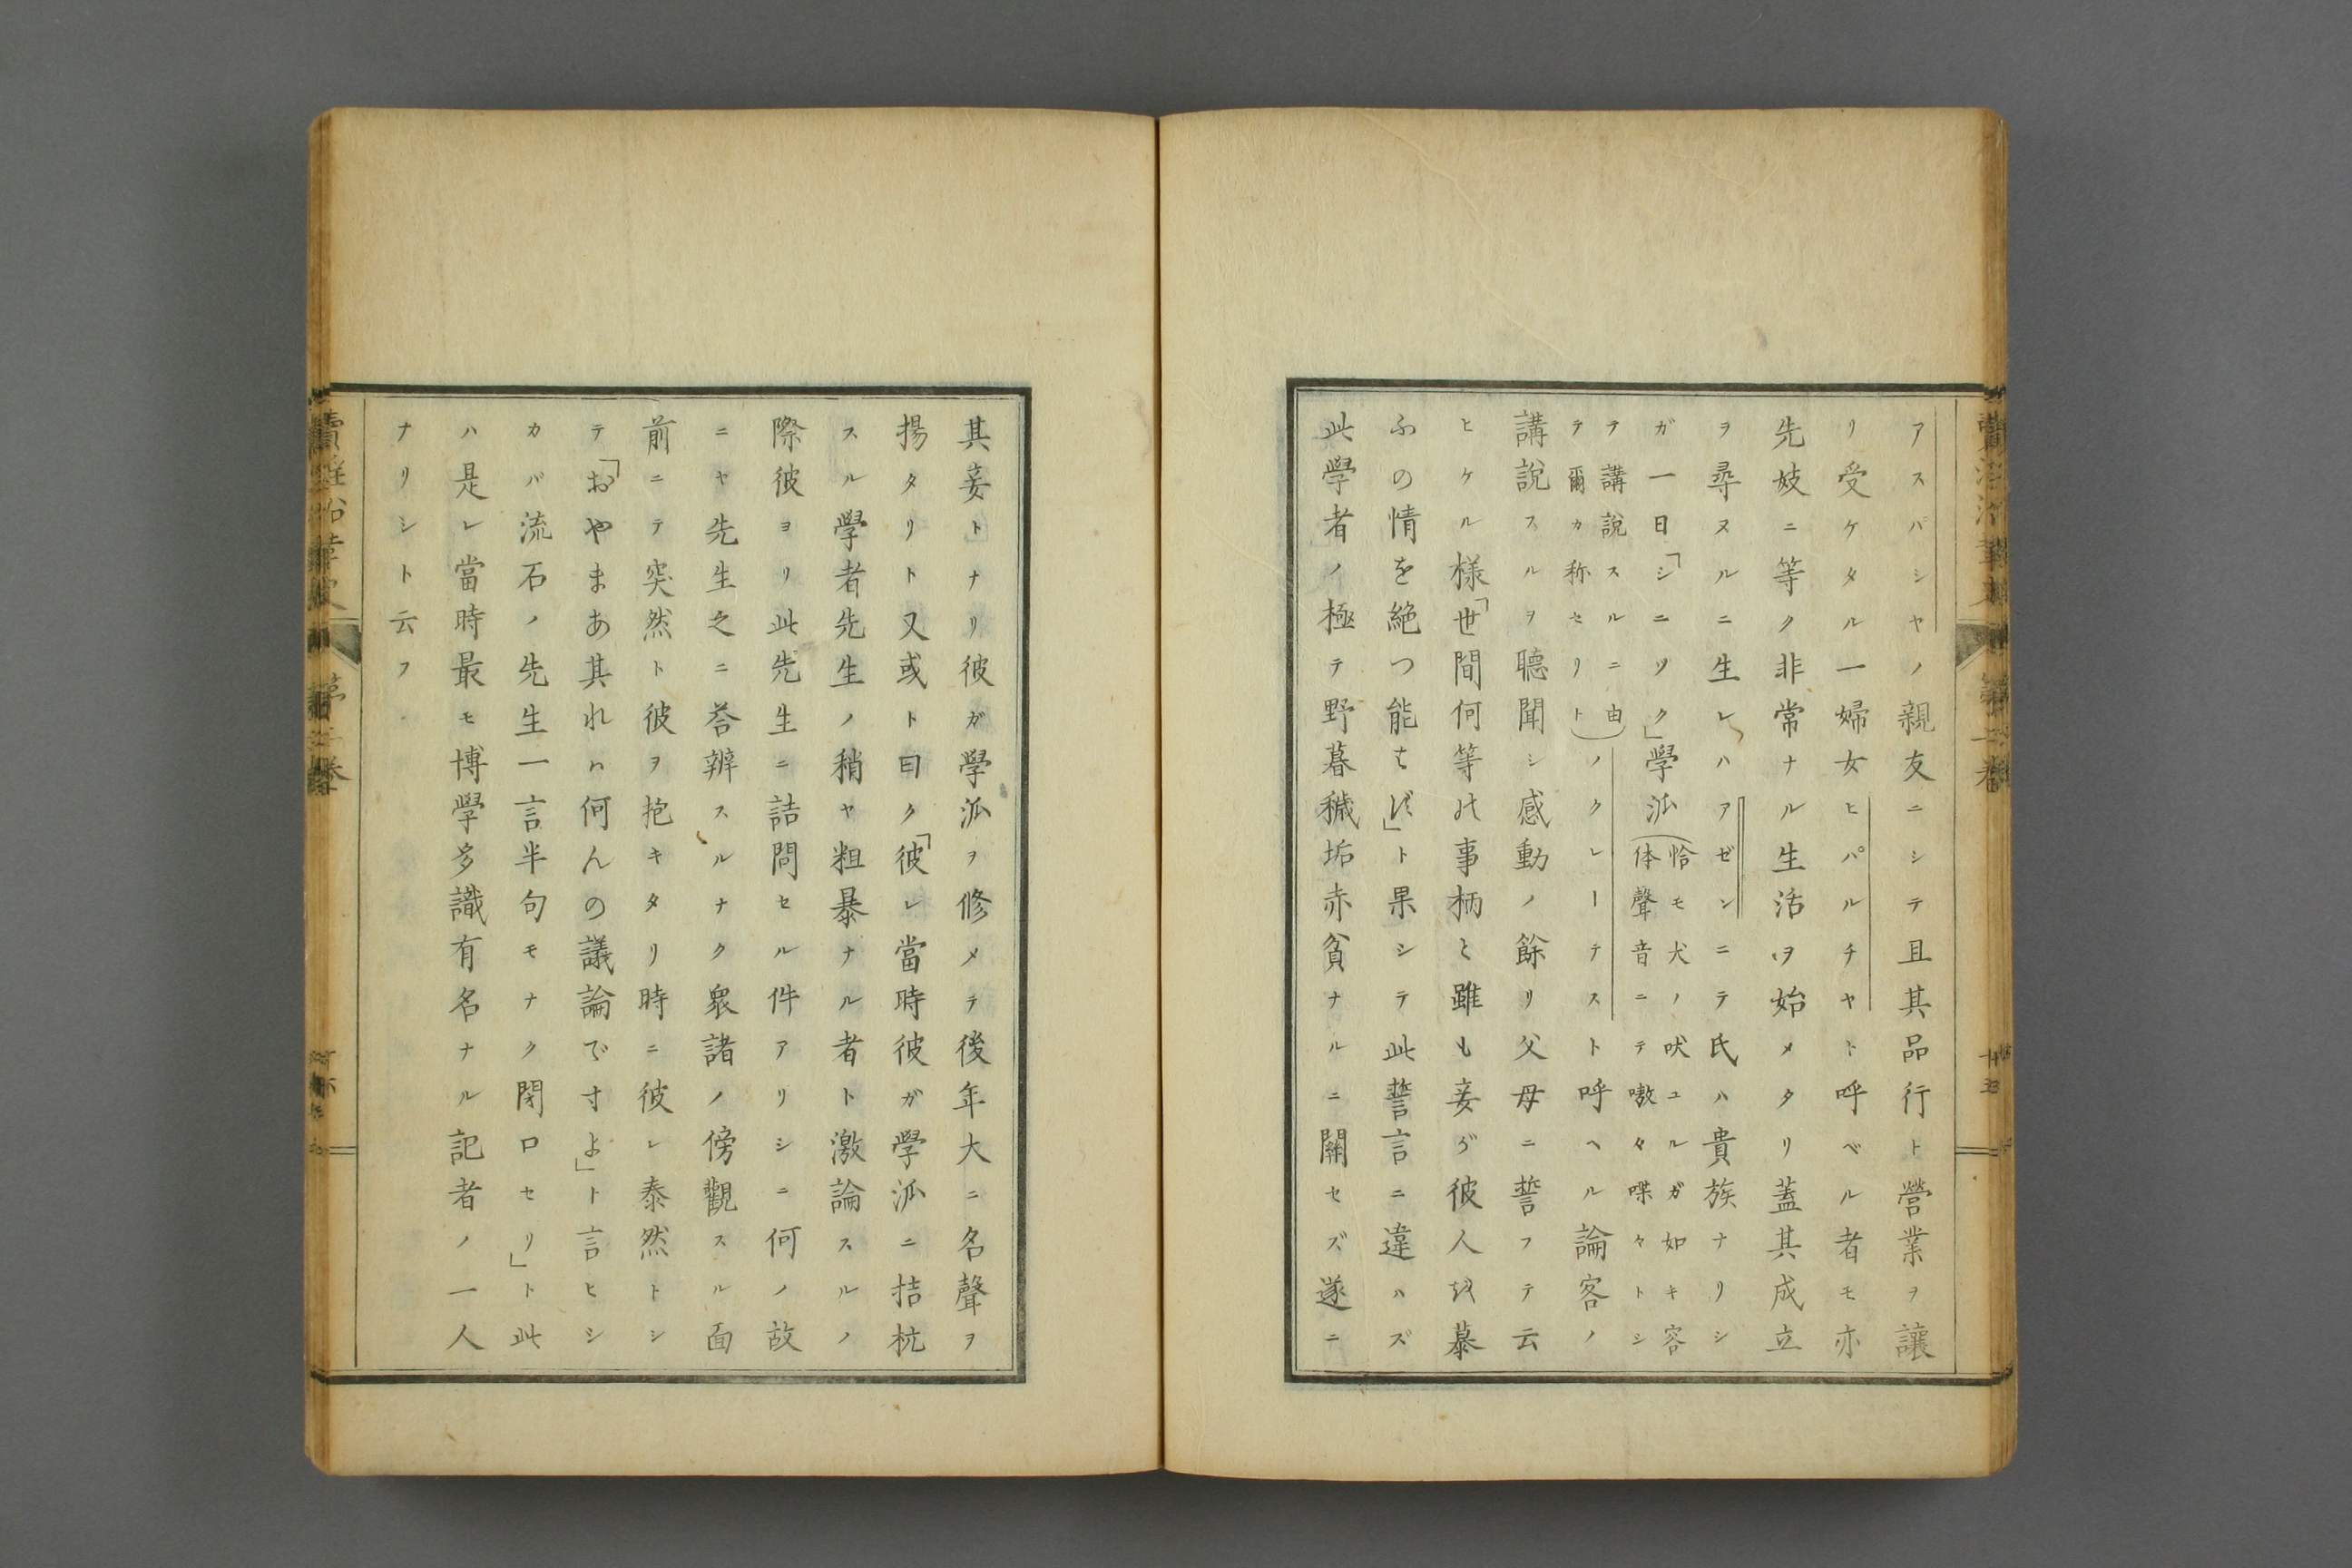 アスパシヤノ親友ニシテ且其品行ト營業ヲ讓
リ受ケタル一婦女ヒパルチヤト呼ベル者モ亦
先妓ニ等ク非常ナル生活ヲ始メタリ蓋其成立
ヲ尋ヌルニ生レハアゼンニテ氏ハ貴族ナリシ
ガ一日「シニツク」學派(恰モ犬ノ吠ユルガ如キ容
体聲音ニテ嗷々喋々トシ
テ講說スルニ由
テ爾カ称セリト)ノクレーテスト呼ヘル論客ノ
講說スルヲ聽聞シ感動ノ餘リ父母ニ誓フテ云
ヒケル樣「世間何等の事柄と雖も妾が彼人を慕
ふの情を絶つ能はず」ト果シテ此誓言ニ違ハズ
此學者ノ極テ野暮穢垢赤貧ナルニ關セズ遂ニ
其妾トナリ彼ガ學派ヲ修メテ後年大ニ名聲ヲ
揚タリト又或ト曰ク「彼レ當時彼ガ學派ニ拮抗
スル學者先生ノ稍ヤ粗暴ナル者ト激論スルノ
際彼ヨリ此先生ニ詰問セル件アリシニ何ノ故
ニヤ先生之ニ荅辨スルナク衆諸ノ傍觀スル面
前ニテ突然ト彼ヲ抱キタリ時ニ彼レ泰然トシ
テ「おやまあ其れハ何んの議論で寸よ」ト言ヒシ
カバ流石ノ先生一言半句モナク閉口セリ」ト此
ハ是レ當時最モ博學多識有名ナル記者ノ一人
ナリシト云フ